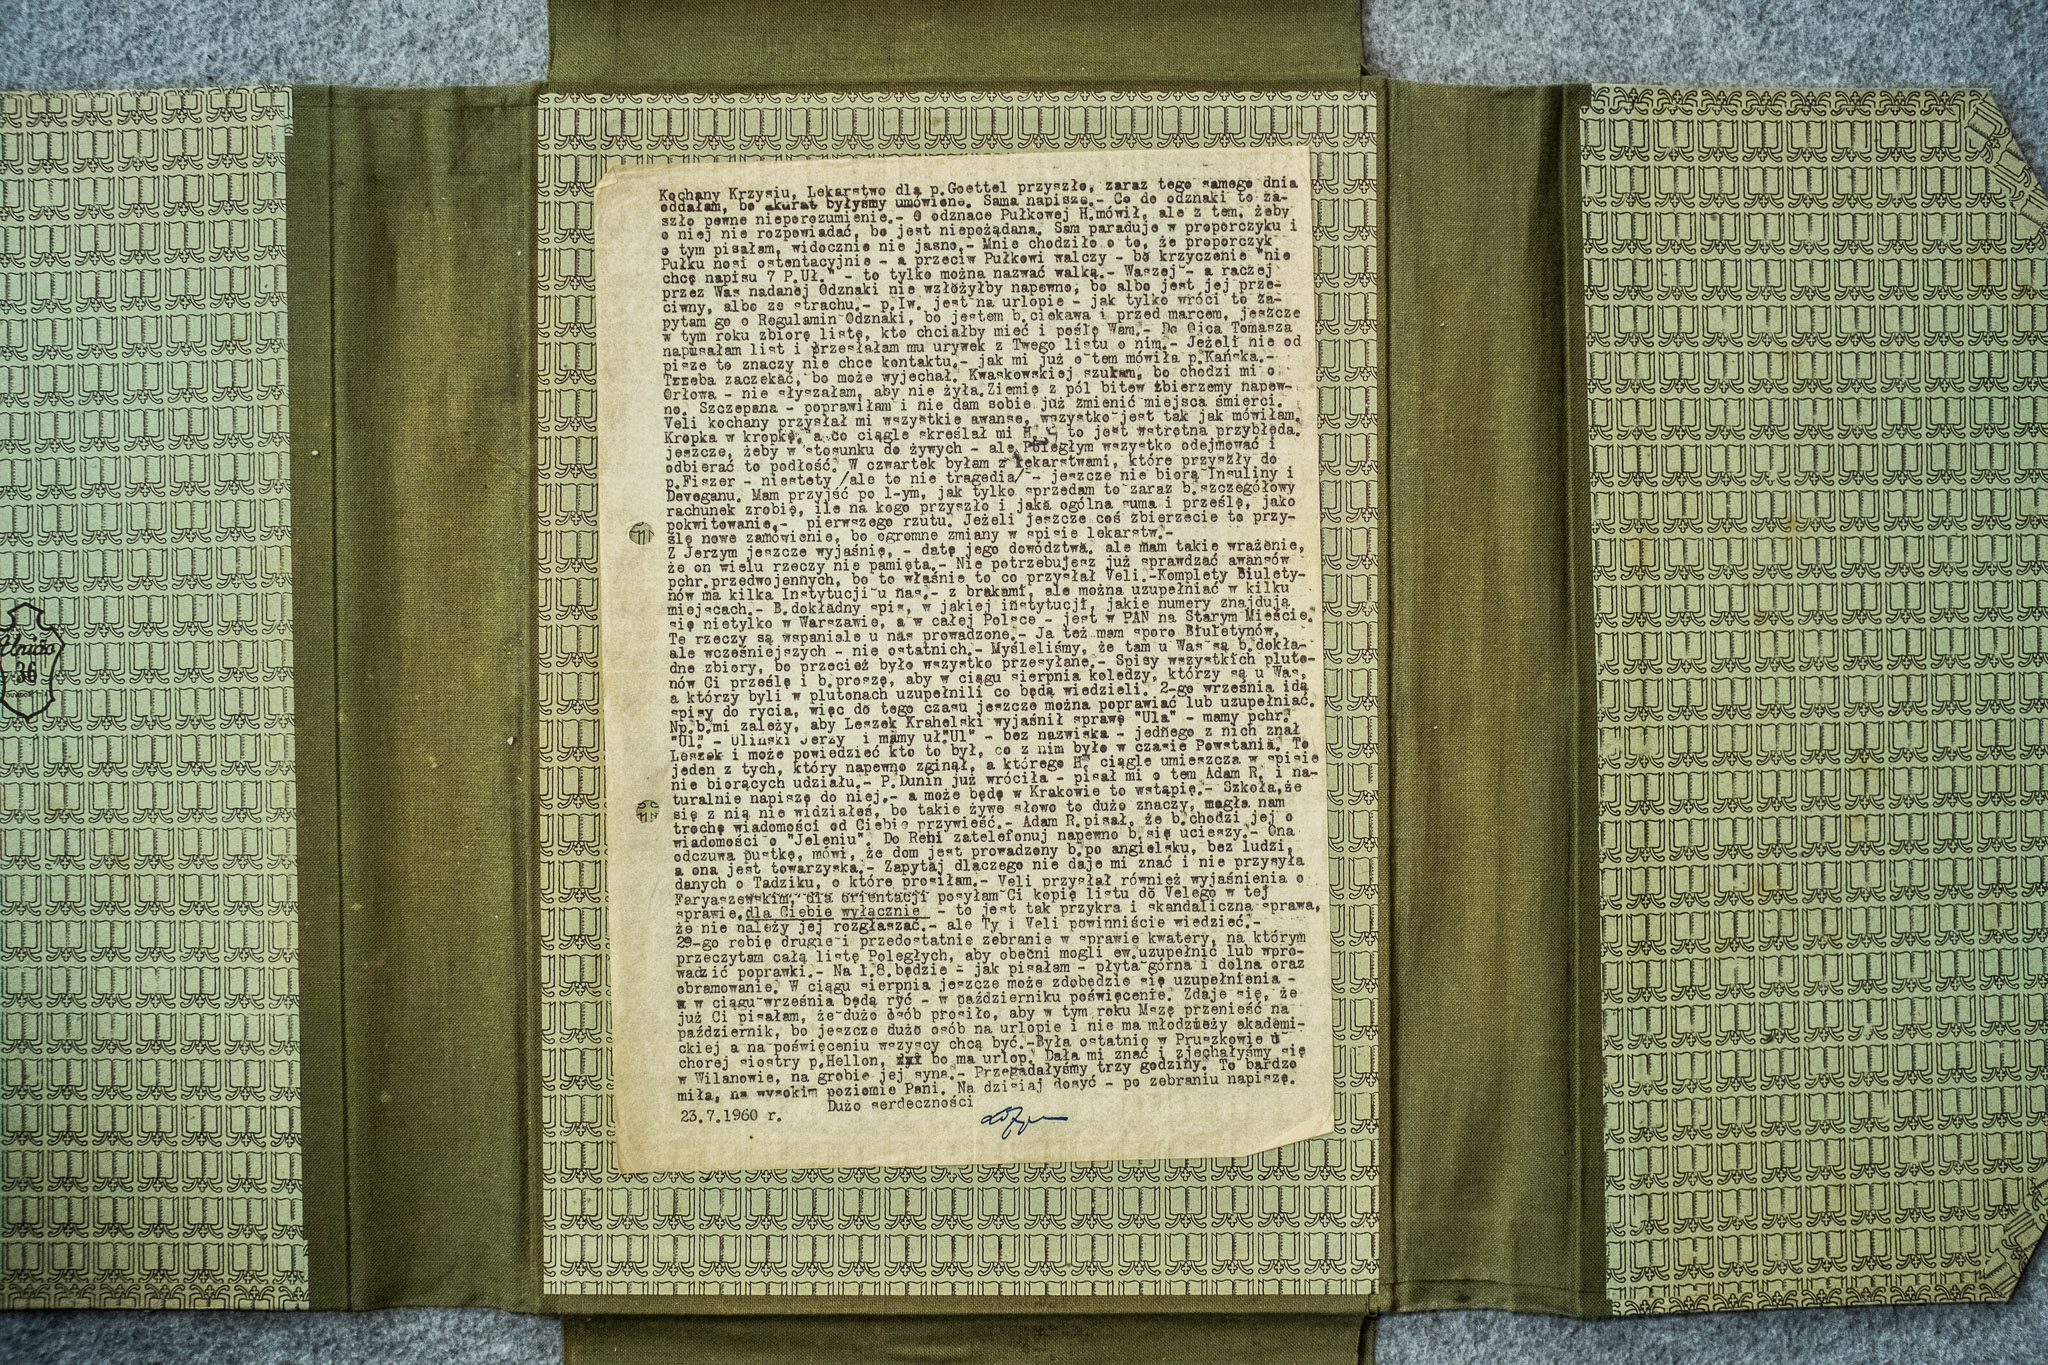 Kochany Krzysiu, Lekarstwo dla p.Goettel przyszło, zaraz tego samego dnia
oddałam, bo akurat byłyśmy umówione. Sama napisze.- Co do odznaki to za-
szło pewne nieporozumienie.- O odznace Pułkowej H.mówił, ale z tem, żeby
o niej nie rozpowiadać, bo jest niepożądana. Sam paraduje w proporczyku i
o tym pisałam, widocznie nie jasno.- Mnie chodziło o to, że proporczyk
Pułku nosi ostentacyjnie - a przeciw Pułkowi walczy - bo krzyczenie "nie
chcę napisu 7 P.Uł." - to tylko można nazwać walką.- Waszej - a raczej
przez Was nadanej Odznaki nie wzłożyłby napewno, bo albo jest jej prze-
ciwny, albo ze strachu.- p.Iw. jest na urlopie - jak tylko wróci to za-
pytam go o Regulamin Odznaki, bo jestem b.ciekawa i przed marcem, jeszcze
w tym roku zbiorę listę, kto chciałby mieć i poślę Wam.- Do Ojca Tomasza
napisałam list i przesłałam mu urywek z Twego listu o nim.- Jeżeli nie od
pisze to znaczy nie chce kontaktu.- jak mi już o tem mówiła p.Kańska.-
Trzeba zaczekać, bo może wyjechał. Kwaskowskiej szukam, bo chodzi mi o
Orłowa - nie słyszałam, aby nie żyła.Ziemię z pól bitew zbierzemy napew-
no. Szczepana - poprawiłam i nie dam sobie już zmienić miejsca śmierci.
Veli kochany przysłał mi wszystkie awanse, wszystko jest tak jak mówiłam.
Kropka w kropkę, a co ciągle skreślał mi H. to jest wstrętna przybłęda.
jeszcze, żeby w stosunku do żywych - ale Poległym wszystko odejmować i
odbierać to podłość. W czwartek byłam z lekarstwami, które przyszły do
p.Fiszer - niestety /ale to nie tragedia/ - jeszcze nie biorą Insuliny i
Deveganu. Mam przyjść po 1-ym, jak tylko sprzedam to zaraz b.szczegółowy
rachunek zrobię, ile na kogo przyszło i jaka ogólna suma i prześlę, jako
pokwitowanie.- pierwszego rzutu. Jeżeli jeszcze coś zbierzecie to przy-
ślę nowe zamówienie, bo ogromne zmiany w spisie lekarstw.-
Z Jerzym jeszcze wyjaśnię, - datę jego dowództwa, ale mam takie wrażenie,
że on wielu rzeczy nie pamięta.- Nie potrzebujesz już sprawdzać awansów
pchr.przedwojennych, bo to właśnie to co przysłał Veli.-Komplety Biulety-
nów ma kilka Instytucji u nas.- z brakami, ale można uzupełniać w kilku
miejscach.- B.dokładny spis, w jakiej instytucji, jakie numery znajdują
się nietylko w Warszawie, a w całej Polsce - jest w PAN na Starym Mieście.
Te rzeczy są wspaniale u nas prowadzone.- Ja też mam sporo Biuletynów,
ale wcześniejszych - nie ostatnich.- Myśleliśmy, że tam u Was są b.dokła-
dne zbiory, bo przecież było wszystko przesyłane.- Spisy wszystkich pluto-
nów Ci prześlę i b.proszę, aby w ciągu sierpnia koledzy, którzy są u Was,
a którzy byli w plutonach uzupełnili co będą wiedzieli. 2-go września idą
spisy do rycia, więc do tego czasu jeszcze można poprawiać lub uzupełniać.
Np.b.mi zależy, aby Leszek Krahelski wyjaśnił sprawę "Ula" - mamy pchr.
"Ul" - Uliński Jerzy i mamy uł"Ul" - bez nazwiska - jednego z nich znał
Leszek i może powiedzieć kto to był, co z nim było w czasie Powstania. To
jeden z tych, który napewno zginął, a którego H. ciągle umieszcza w spisie
nie biorących udziału.- P.Dunin już wróciła - pisał mi o tem Adam R. i na-
turalnie napiszę do niej.- a może będę w Krakowie to wstąpię.- Szkoła,że
się z nią nie widziałeś, bo takie żywe słowo to dużo znaczy, mogła nam
trochę wiadomości od Ciebie przywieść.- Adam R.pisał, że b.chodzi jej o
wiadomości o "Jeleniu". Do Reni zatelefonuj napewno b.się ucieszy.- Ona
odczuwa pustkę, mówi, że dom jest prowadzony b.po angielsku, bez ludzi,
a ona jest towarzyska.- Zapytaj dlaczego nie daje mi znać i nie przysyła
danych o Tadziku, o które prosiłam.- Veli przysłał również wyjaśnienia o
Faryaszewskim, dla orientacji posyłam Ci kopię listu do Velego w tej
sprawie.dla Ciebie wyłącznie - to jest tak przykra i skandaliczna sprawa,
że nie należy jej rozgłaszać.- ale Ty i Veli powinniście wiedzieć.-
29-go robię drugie i przedostatnie zebranie w sprawie kwatery, na którym
przeczytam całą listę Poległych, aby obecni mogli ew.uzupełnić lub wpro-
wadzić poprawki.- Na 1.8.będzie - jak pisałam - płyta górna i dolna oraz
obramowanie. W ciągu sierpnia jeszcze może zdobędzie się uzupełnienia -
w ciągu września będą ryć - w październiku poświęcenie. Zdaje się, że
już Ci pisałam, że dużo osób prosiło, aby w tym roku Mszę przenieść na
październik, bo jeszcze dużo osób na urlopie i nie ma młodzieży akademi-
ckiej a na poświęceniu wszyscy chcą być.-Była ostatnio w Pruszkowie u
chorej siostry p.Hellon, bo ma urlop. Dała mi znać i zjechałyśmy się
w Wilanowie, na grobie jej syna.- Przegadałyśmy trzy godziny. To bardzo
miła, na wysokim poziomie Pani. Na dzisiaj dosyć - po zebraniu napiszę.
Dużo serdeczności
23.7.1960 r.
36